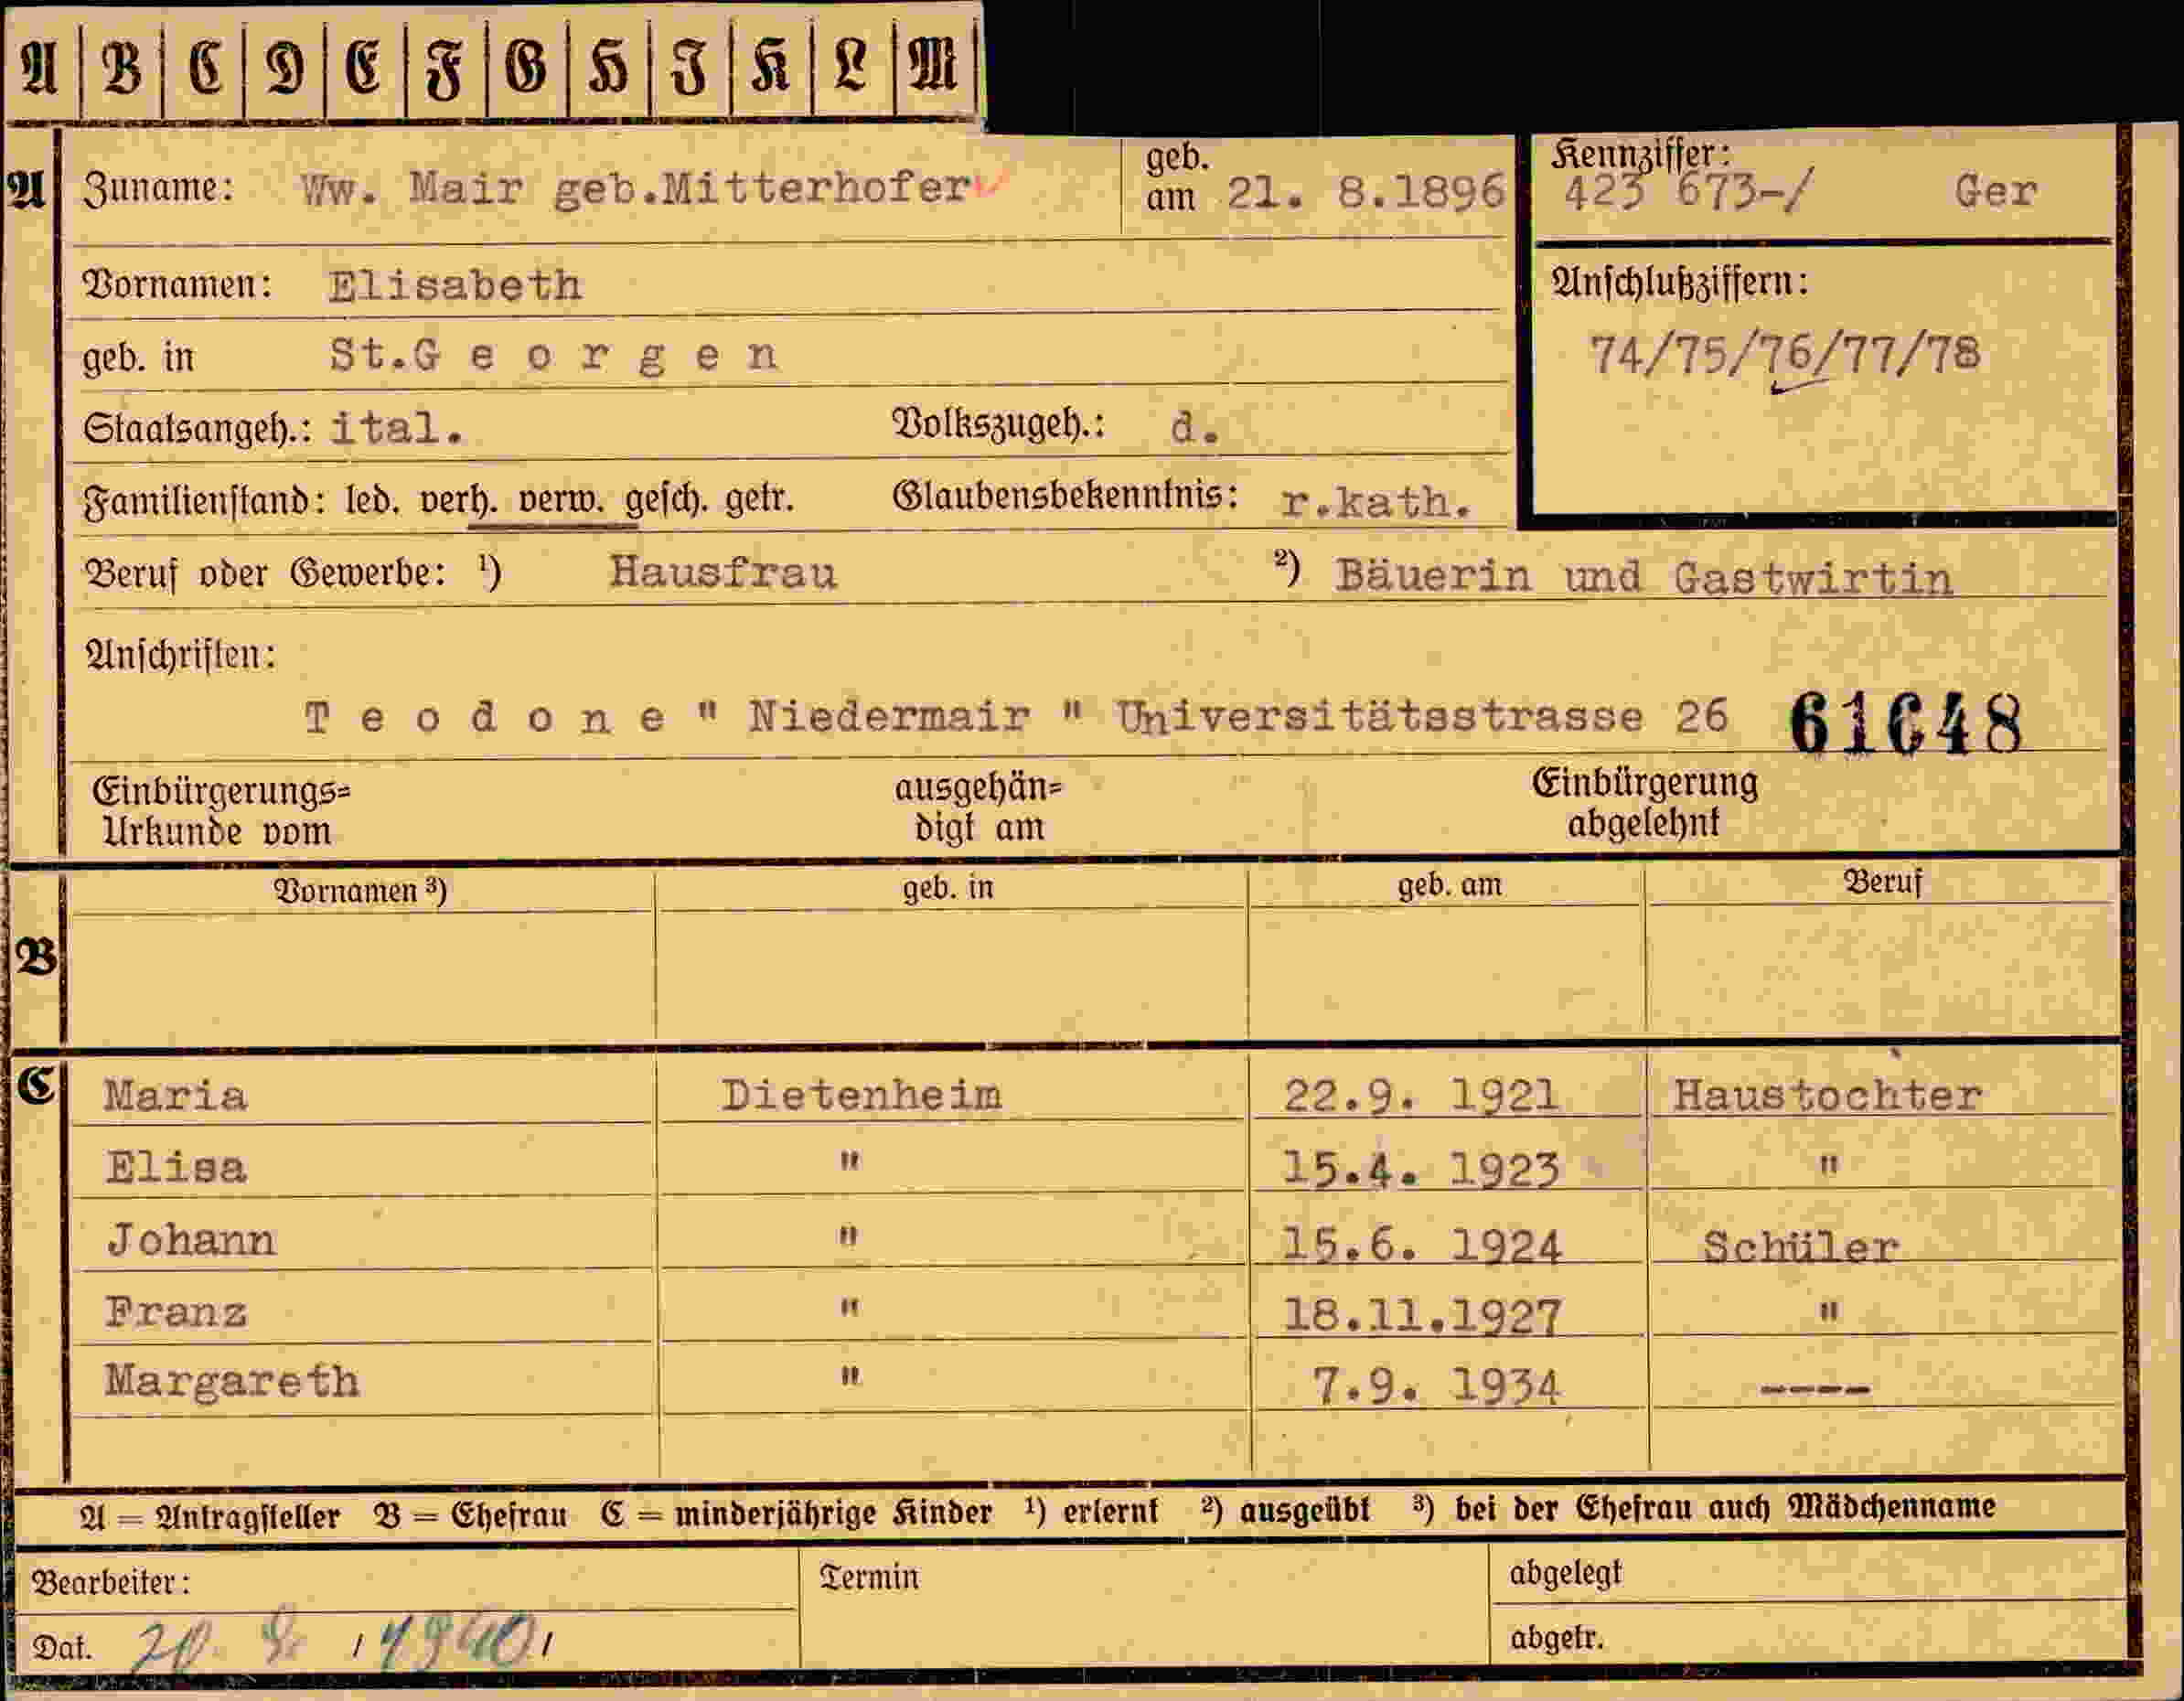 A B C D E F G H I K L M
A Zuname: Ww. Mair geb.Mitterhofer geb. am 21. 8.1896 Kennziffer: 423 673-/ Ger
Vornamen: Elisabeth Anschlußziffern:
geb. in St.G e o r g e n 74/75/76/77/78
Staatsangeh.: ital. Volkszugeh.: d.
Familienstand: led. verh. verw. gesch. getr. Glaubensbekenntnis: r.kath.
Beruf oder Gewerbe: ¹) Hausfrau ²) Bäuerin und Gastwirtin
Anschriften:
T e o d o n e " Niedermair " Universitätsstrasse 26 61648
Einbürgerungs= ausgehän= Einbürgerung
Urkunde vom digt am abgelehnt
Vornamen ³) geb. in geb. am Beruf
B
C Maria Dietenheim 22.9. 1921 Haustochter
Elisa " 15.4. 1923 "
Johann " 15.6. 1924 Schüler
Franz " 18.11.1927 "
Margareth " 7.9. 1934 ----
A = Antragsteller B = Ehefrau C = minderjährige Kinder ¹) erlernt ²) ausgeübt ³) bei der Ehefrau auch Mädchenname
Bearbeiter: Termin abgelegt
Dat. 20. 8. 1940 abgetr.